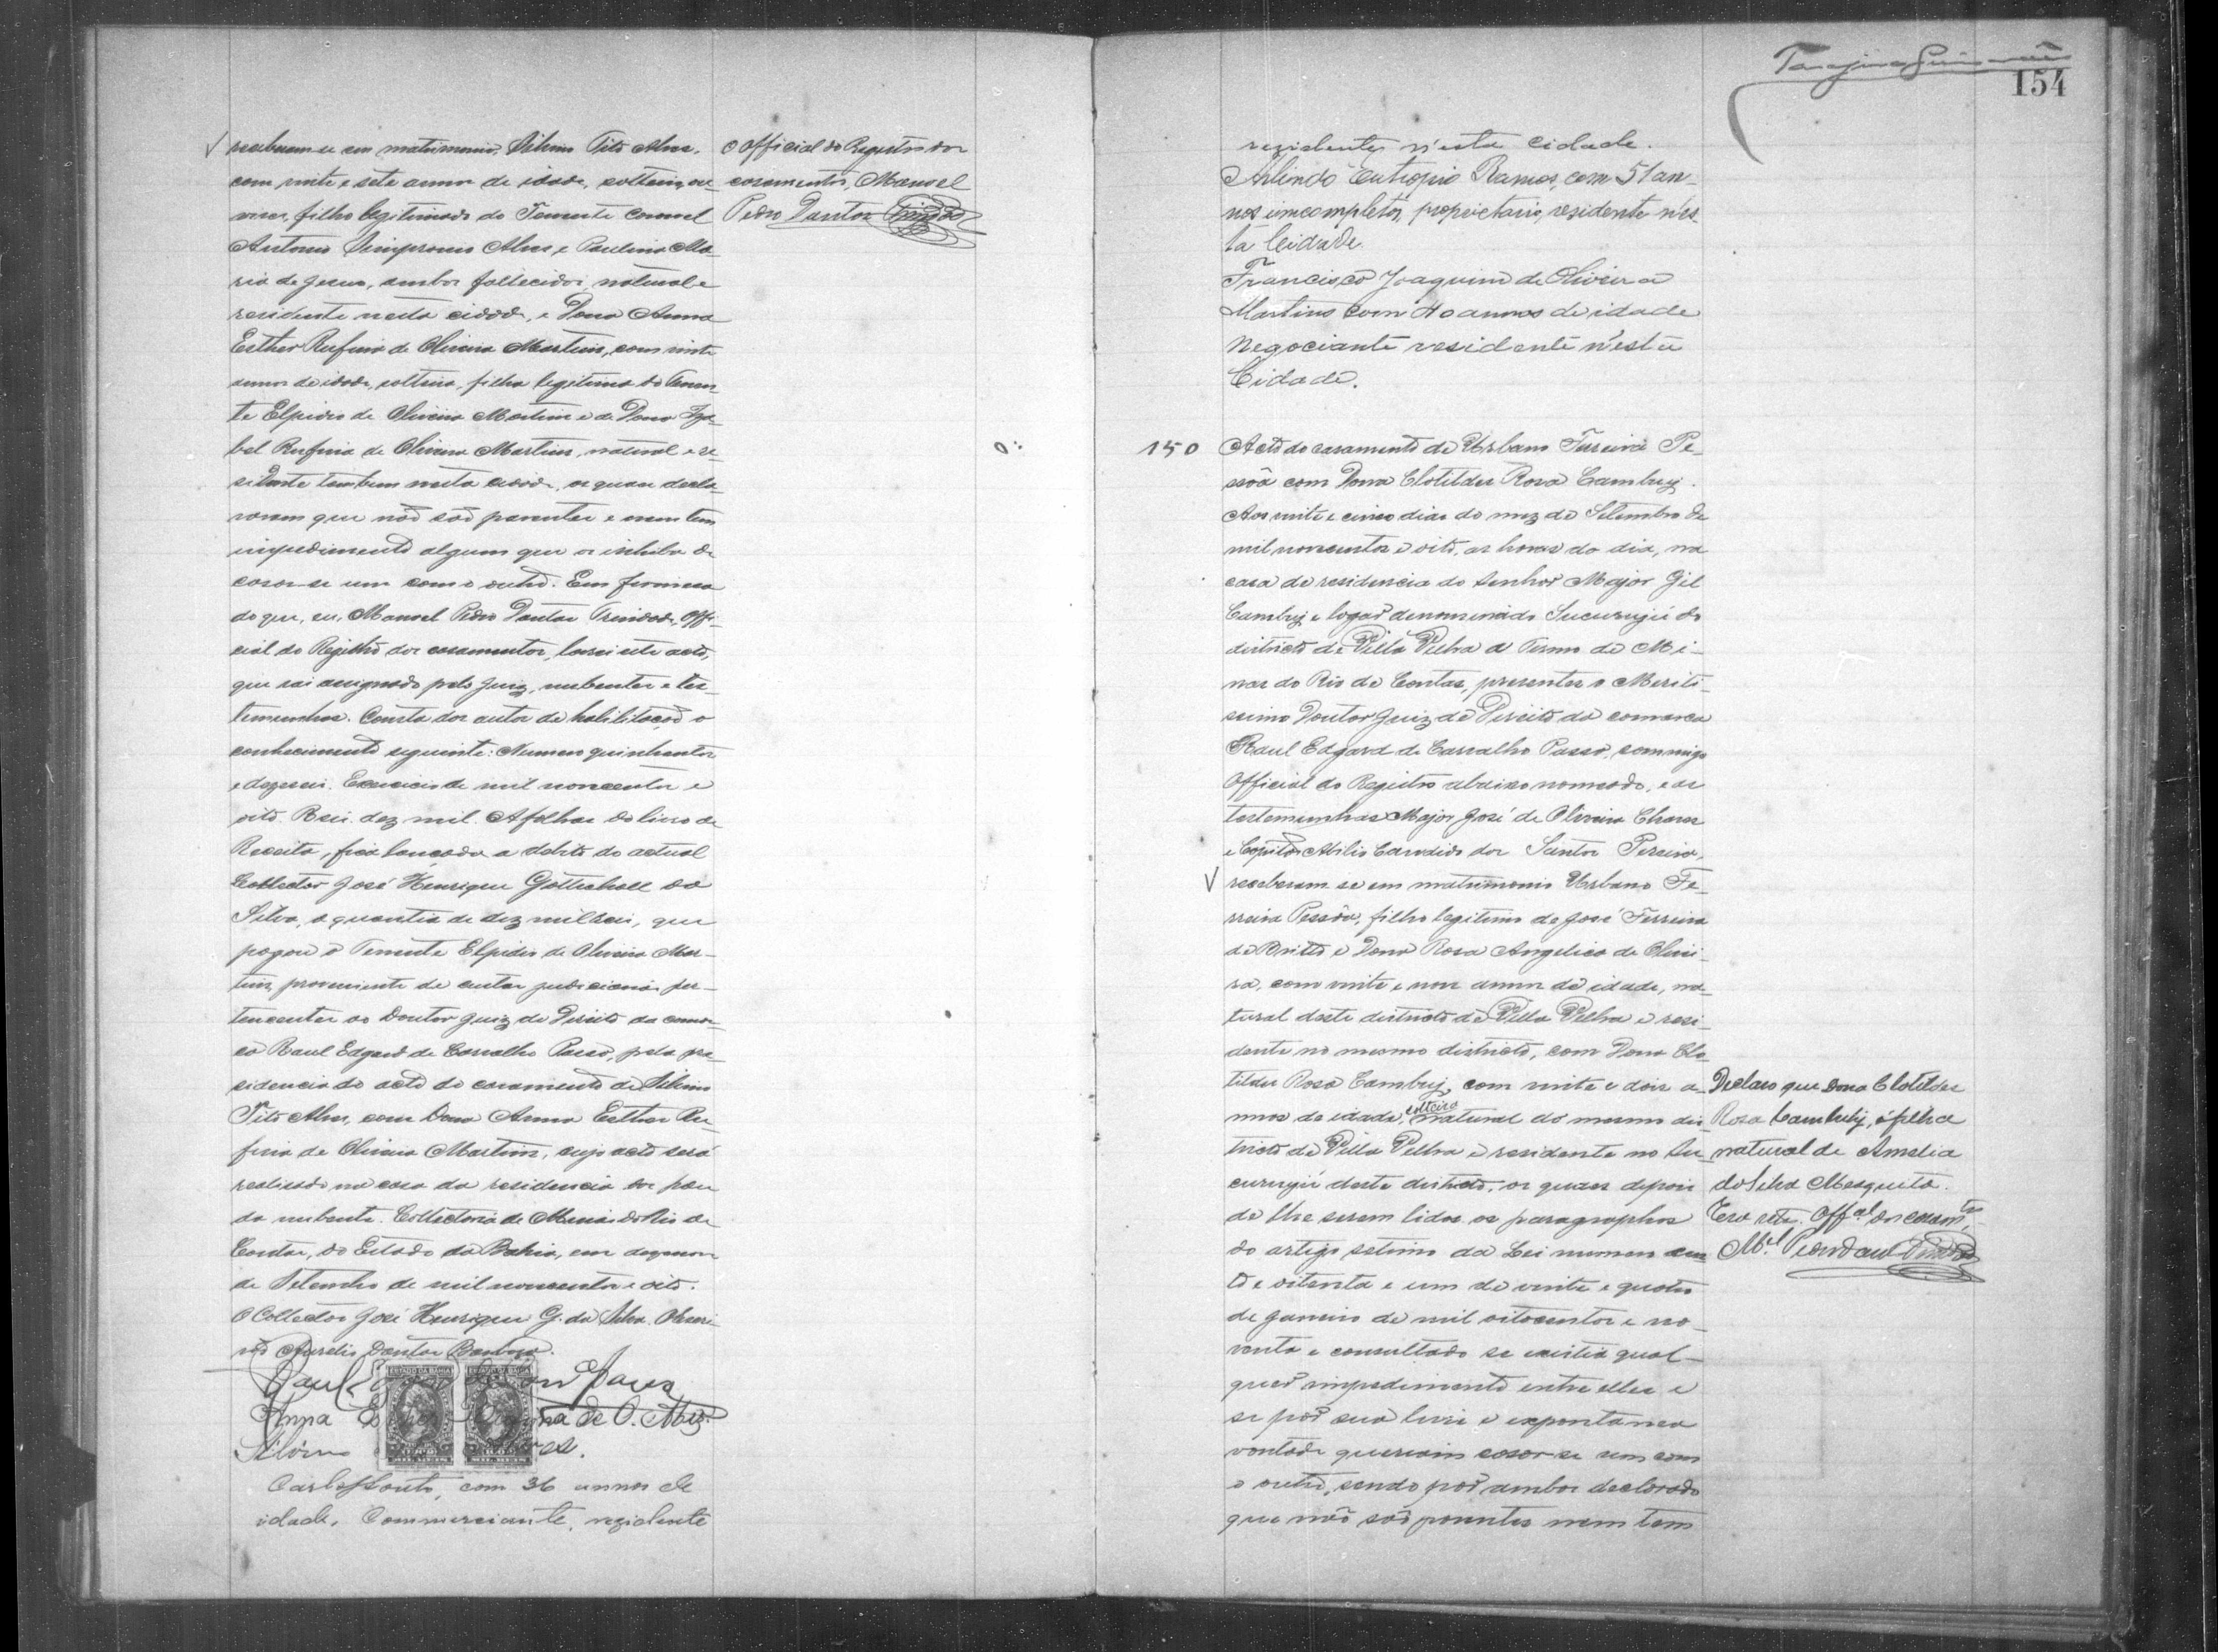 receberam-se em matrimonio, Silvino Tito Alves,
com vinte e sete annos de idade, solteiro, ou-
rives, filho legitimado do Tenente Coronel
Antonio Simpronio Alves e Paulina Ma-
ria de Jesus, ambos fallecidos, natural e
residente nesta cidade, e Dona Anna
Esther Rufina de Oliveira Martins, com vinte
annos de idade, solteira, filha legitima do Tenen-
te Elpidio de Oliveira Martins e de Dona Iza-
bel Rufina de Oliveira Martins, natural e re-
sidente tambem nesta cidade, os quaes decla-
raram que não são parentes e nem tem
impedimento algum que os inhiba de
casar-se um com o outro. Em firmeza
do que, eu, Manoel Pedro Dantas Trindade, Offi-
cial do Registro dos casamentos, lavrei este acto,
que vai assignado pelo Juiz, nubentes e tes-
temunhas. Consta dos autos de habilitação o
conhecimento seguinte: Numero quinhentos
e dezeseis. Exercicio de mil novecentos e
oito. Reis. dez mil. A folhas do livro de
Receita, fica lançada a debito do actual
Collector José Henrique Gottschall da
Silva, a quantia de dez mil reis, que
pagou o Tenente Elpidio de Oliveira Mar-
tins, proveniente de custas judiciarias per-
tencentes ao Doutor Juiz de Direito da comar-
ca Raul Edgard de Carvalho Passo, pela pre-
sidencia do acto do casamento de Silvino
Tito Alves, com Dona Anna Esther Ru-
fina de Oliveira Martins, cujo acto será
realisado na casa da residencia dos paes
da nubente. Collectoria de Minas do Rio de
Contas, do Estado da Bahia, em dezenove
de Setembro de mil novecentos e oito.
O Collector José Henrique G. da Silva. O Escri-
vão Aurelio Dantas Barbosa.
Raul Passo
Anna de O. Miz.
Silvino
Carlos Souto, com 36 annos de
idade, Commerciante, rezidente
O Official do Registro dos
casamentos, Manoel
Pedro Dantas Trindade
154
rezidente n'esta cidade.
Arlindo Eutropio Ramos, com 51 an-
nos imcompletos, proprietario, residente n'es-
ta Cidade.
Francisco Joaquim de Oliveira
Martins com 40 annos de idade
Negociante residente n'esta
Cidade.
150
Acto do casamento de Urbano Ferreira Pe-
ssôa com Dona Clotildes Rosa Cambuy.
Aos vinte e cinco dias do mez de Setembro de
mil novecentos e oito, as horas do dia, na
casa de residencia do Senhor Major Gil
Cambuy e logar denominado Sucurujú do
districto de Villa Velha do Termo de Mi-
nas do Rio de Contas, presentes o Meriti-
ssimo Doutor Juiz de Direito da comarca
Raul Edgard de Carvalho Passo, commigo
Official do Registro abaixo nomeado, e as
testemunhas Major José de Oliveira Chaves
e Capitão Abilio Candido dos Santos Pereira,
receberam-se em matrimonio Urbano Fe-
rreira Pessôa, filho legitimo de José Ferreira
de Britto e Dona Rosa Angelica de Olivei-
ra, com vinte e nove annos de idade, na-
tural deste districto de Villa Velha e resi-
dente no mesmo districto, com Dona Clo-
tildes Rosa Cambuy, com vinte e dois a-
nnos de idade, solteira natural do mesmo dis-
tricto de Villa Velha e residente no Su-
curujú deste districto, os quaes depois
de lhe serem lidos os paragraphos
do artigo setimo da Lei numero cen-
to e oitenta e um de vinte e quatro
de Janeiro de mil oitocentos e no-
venta e consultado se existia qual-
quer impedimento entre elles e
se por sua livre e expontanea
vontade queriam casar-se um com
o outro, sendo por ambos declarado
que não são parentes nem tem
Declaro que Dona Clotildes
Rosa Cambuhy, é filha
natural de Amelia
da Silva Mesquita.
Era retro. Offal dos casamtos,
Mel Pedro Dantas Trindade